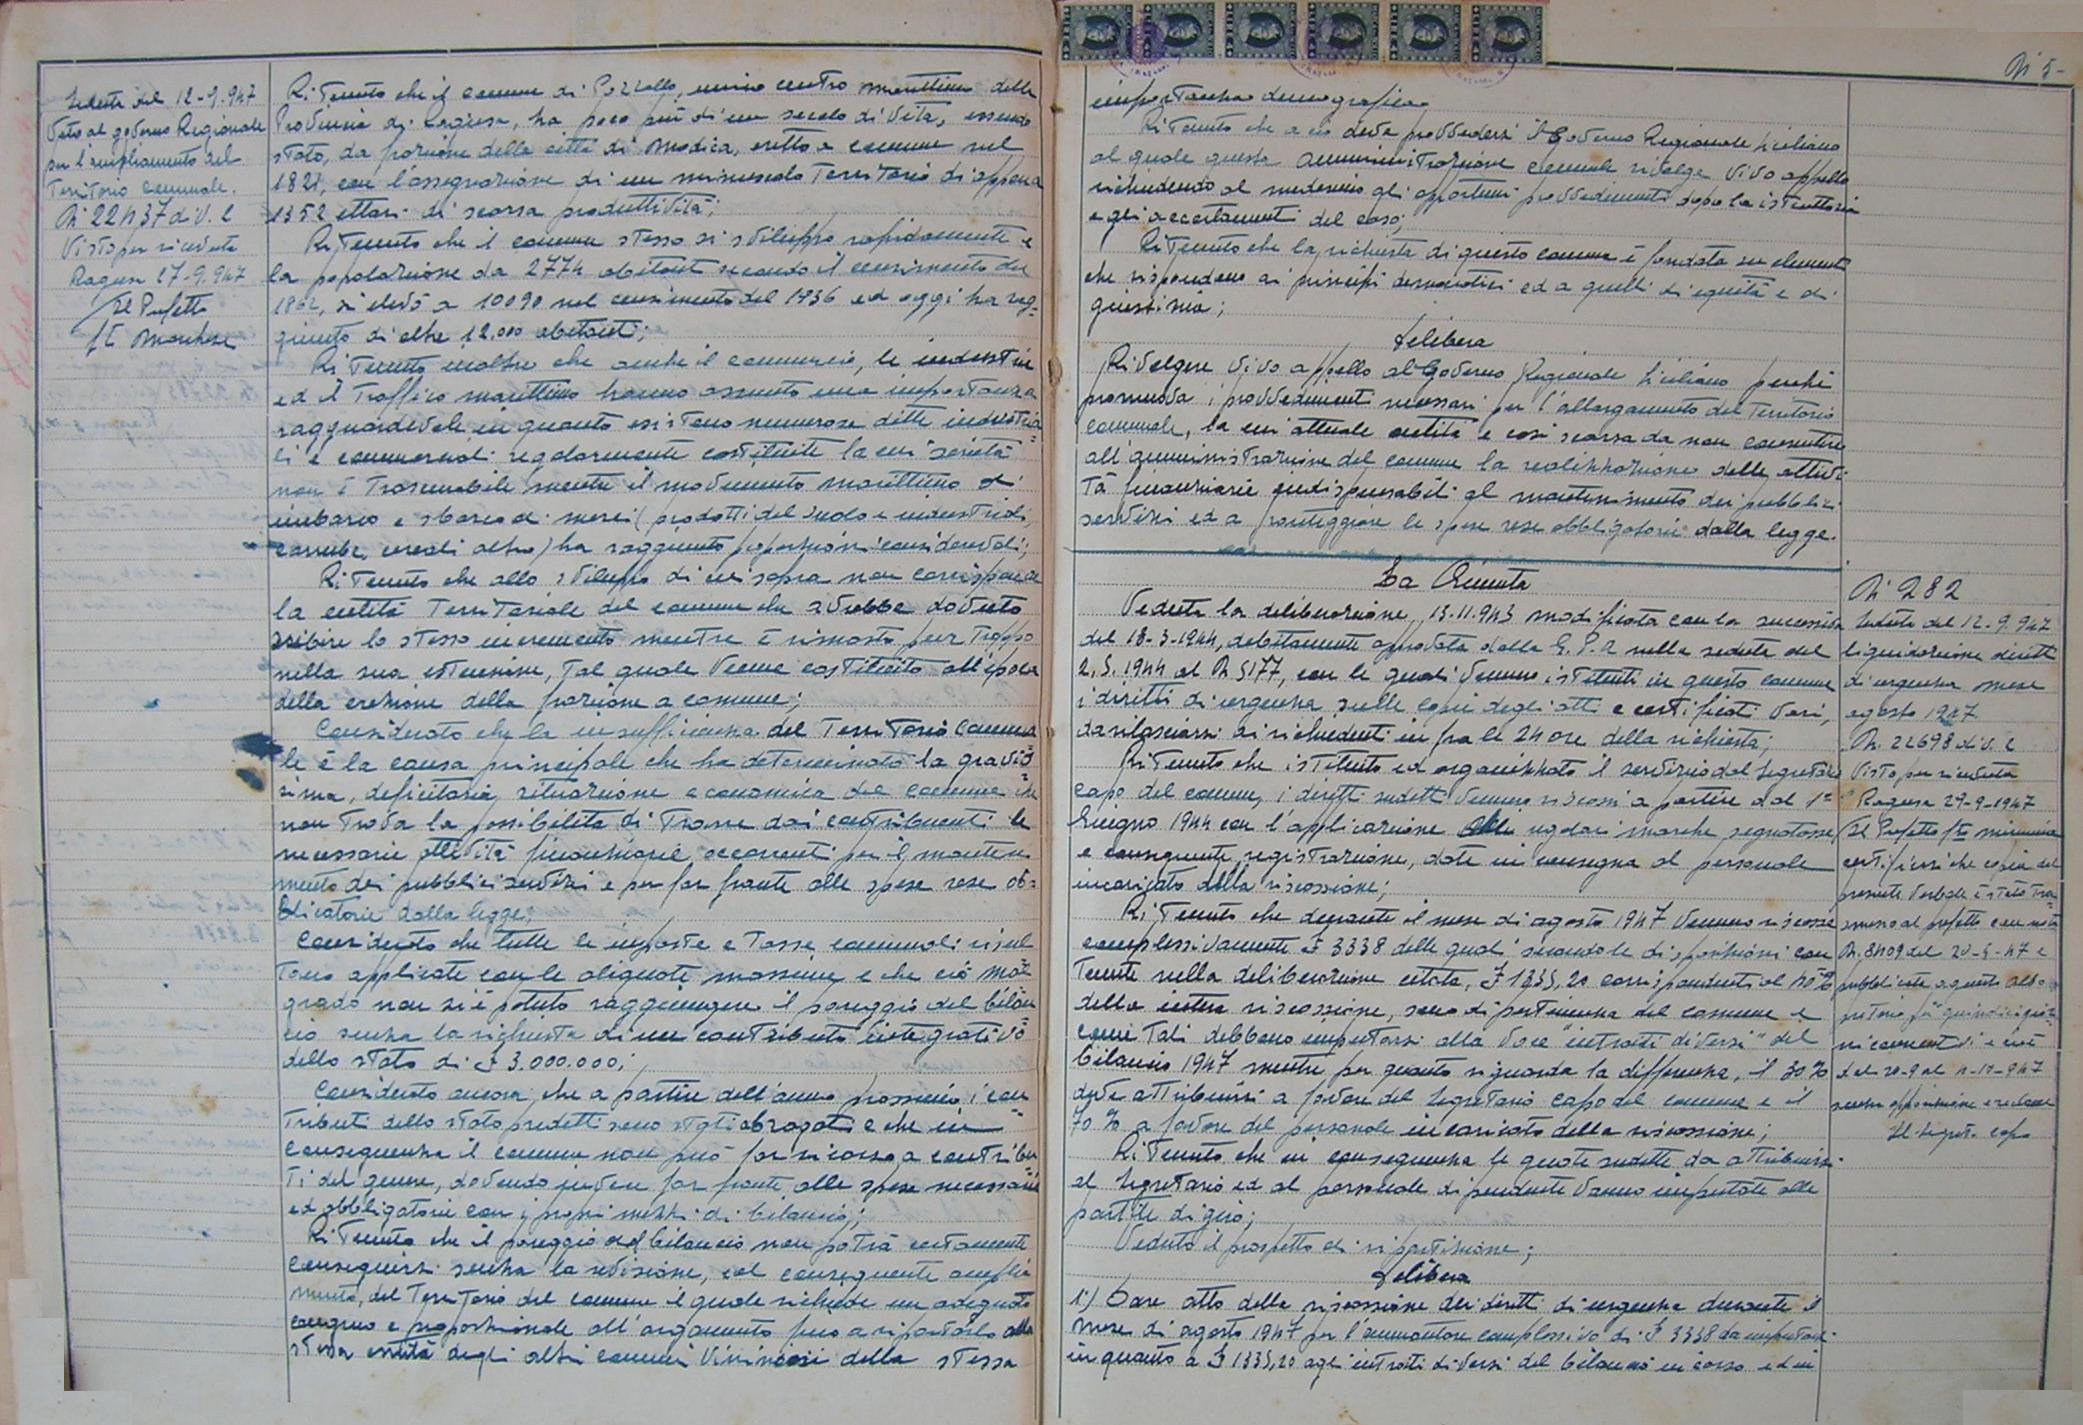 Seduta del 12-9-947
Voto al governo Regionale
per l'ampliamento del
Territorio comunale.
N° 22437 div. 2
Visto per ricevuta
Ragusa 17-9-947
Il Prefetto
Ritenuto che il comune di Pozzallo, unico centro marittimo della
Provincia di Ragusa, ha poco più di un secolo di vita, essendo
stato, da frazione della città di Modica, eretto a comune nel
1829, con l'assegnazione di un minuscolo Territorio di appena
1352 ettari di scarsa produttività;
Ritenuto che il comune stesso si sviluppò rapidamente e
la popolazione da 2774 abitanti secondo il censimento del
1862, si elevò a 10090 nel censimento del 1936 ed oggi ha rag-
giunto di oltre 12.000 abitanti;
Ritenuto inoltre che anche il commercio, le industrie
ed il traffico marittimo hanno assunto una importanza
ragguardevole in quanto esistono numerose ditte industria-
li e commerciali regolarmente costituite la cui società
non è trascurabile mentre il movimento marittimo di
imbarco e sbarco di merci (prodotti del suolo e industriali,
carrube, cereali altro) ha raggiunto proporzioni considerevoli;
Ritenuto che allo sviluppo di cui sopra non corrisponde
la entità Territoriale del comune che avrebbe dovuto
subire lo stesso incremento mentre è rimasta pur troppo
nella sua estensione, tal quale venne costituito all'epoca
della erezione della frazione a comune;
Considerato che la insufficienza del Territorio Comuna
le è la causa principale che ha determinato la gravis-
sima, deficitaria, situazione economica del comune che
non trova la possibilità di trarre dai contribuenti le
necessarie attività finanziarie occorrenti per il manteni
mento dei pubblici servizi e per far fronte alle spese rese ob-
bligatorie dalla legge;
Considerato che tutte le imposte e tasse comunali risul
tano applicate con le aliquote massime e che ciò mal
grado non si è potuto raggiungere il pareggio del bilan
cio senza la richiesta di un contributo integrativo
dello stato di £ 3.000.000;
Considerato ancora, che a partire dall'anno prossimo i con-
tributi dello stato predetti sono stati abrogati e che in
conseguenza il comune non può far ricorso a contribu
ti del genere, dovendo invece far fronte alle spese necessarie
ed obbligatorie con i propri mezzi di bilancio;
Ritenuto che il pareggio del bilancio non potrà certamente
conseguirsi senza la revisione, ed conseguente amplia
mento, del Territorio del comune il quale richiede un adeguato
congruo e proporzionale all'argamento fino a riportarlo alla
stessa entità degli altri comuni viciniori della stessa
N° 5-
importanza demografica
Ritenuto che a ciò deve provvedersi il Governo Regionale Siciliano
al quale questa Amministrazione comunale rivolge vivo appello
richiedendo al medesimo gli opportuni provvedimenti dopo la istruttoria
e gli accertamenti del caso;
Ritenuto che la richiesta di questo comune è fondata su elementi
che rispondono ai principi democratici ed a quelli di equità e di
giustizia;
Delibera
Rivolgere vivo appello al Governo Regionale Siciliano perchè
promuova i provvedimenti necessari per l'allargamento del Territorio
comunale, la cui attuale entità è così scarsa da non consentire
all'amministrazione del comune la realizzazione delle attivi
tà finanziarie indispensabili al mantenimento dei pubblici
servizi ed a fronteggiare le spese rese obbligatorie dalla legge.
La Giunta
Veduta la deliberazione 13.11.943 modificata con la successiva
del 18-3-1944, debitamente approvata dalla G.P.A nella seduta del
2.5.1944 al N 5177, con le quali vennero istituiti in questo comune
i diritti di urgenza sulle copie degli atti e certificati vari,
da rilasciarsi ai richiedenti in fra le 24 ore della richiesta;
Ritenuto che istituito ed organizzato il servizio dal Segretario
capo del comune, i diritti sudetti vennero riscossi a partire dal 1°
Giugno 1944 con l'applicazione delle regolari marche segnatasse
e conseguente registrazione, date in consegna al personale
incaricato della riscossione;
Ritenuto che durante il mese di agosto 1947 vennero riscosse
complessivamente £ 3338 delle quali secondo le disposizioni con
tenute nella deliberazione citata, £ 1335,20 corrispondenti al 40%
della intera riscossione, sono di pertinenza del comune e
come tali debbono imputarsi alla voce "introiti diversi" del
bilancio 1947 mentre per quanto riguarda la differenza, il 30%
deve attribuirsi a favore del Segretario capo del comune e il
70% a favore del personale incaricato della riscossione;
Ritenuto che in conseguenza le quote sudette da attribuirsi
al Segretario ed al personale dipendente vanno imputate alle
partite di giro;
Veduto il prospetto di ripartizione;
Delibera
1°) Dare atto della riscossione dei diritti di urgenza durante il
mese di agosto 1947 per l'ammontare complessivo di £ 3338 da imputarsi
in quanto a £ 1335,20 agli introiti diversi del bilancio in corso ed in
N° 282
Seduta del 12-9-947
liquidazione diritti
di urgenza mese
agosto 1947
N. 22698 div. 2
Visto per ricevuta
Ragusa 29-9-1947
Il Prefetto
certificasi che copia del
presente verbale è stato tra-
smesso al prefetto con nota
N. 8409 del 20-9-47 e
pubblicato a questo albo
pretorio per quindici gior-
ni consecutivi e cioè
senza opposizione e reclami
Il Segret. capo